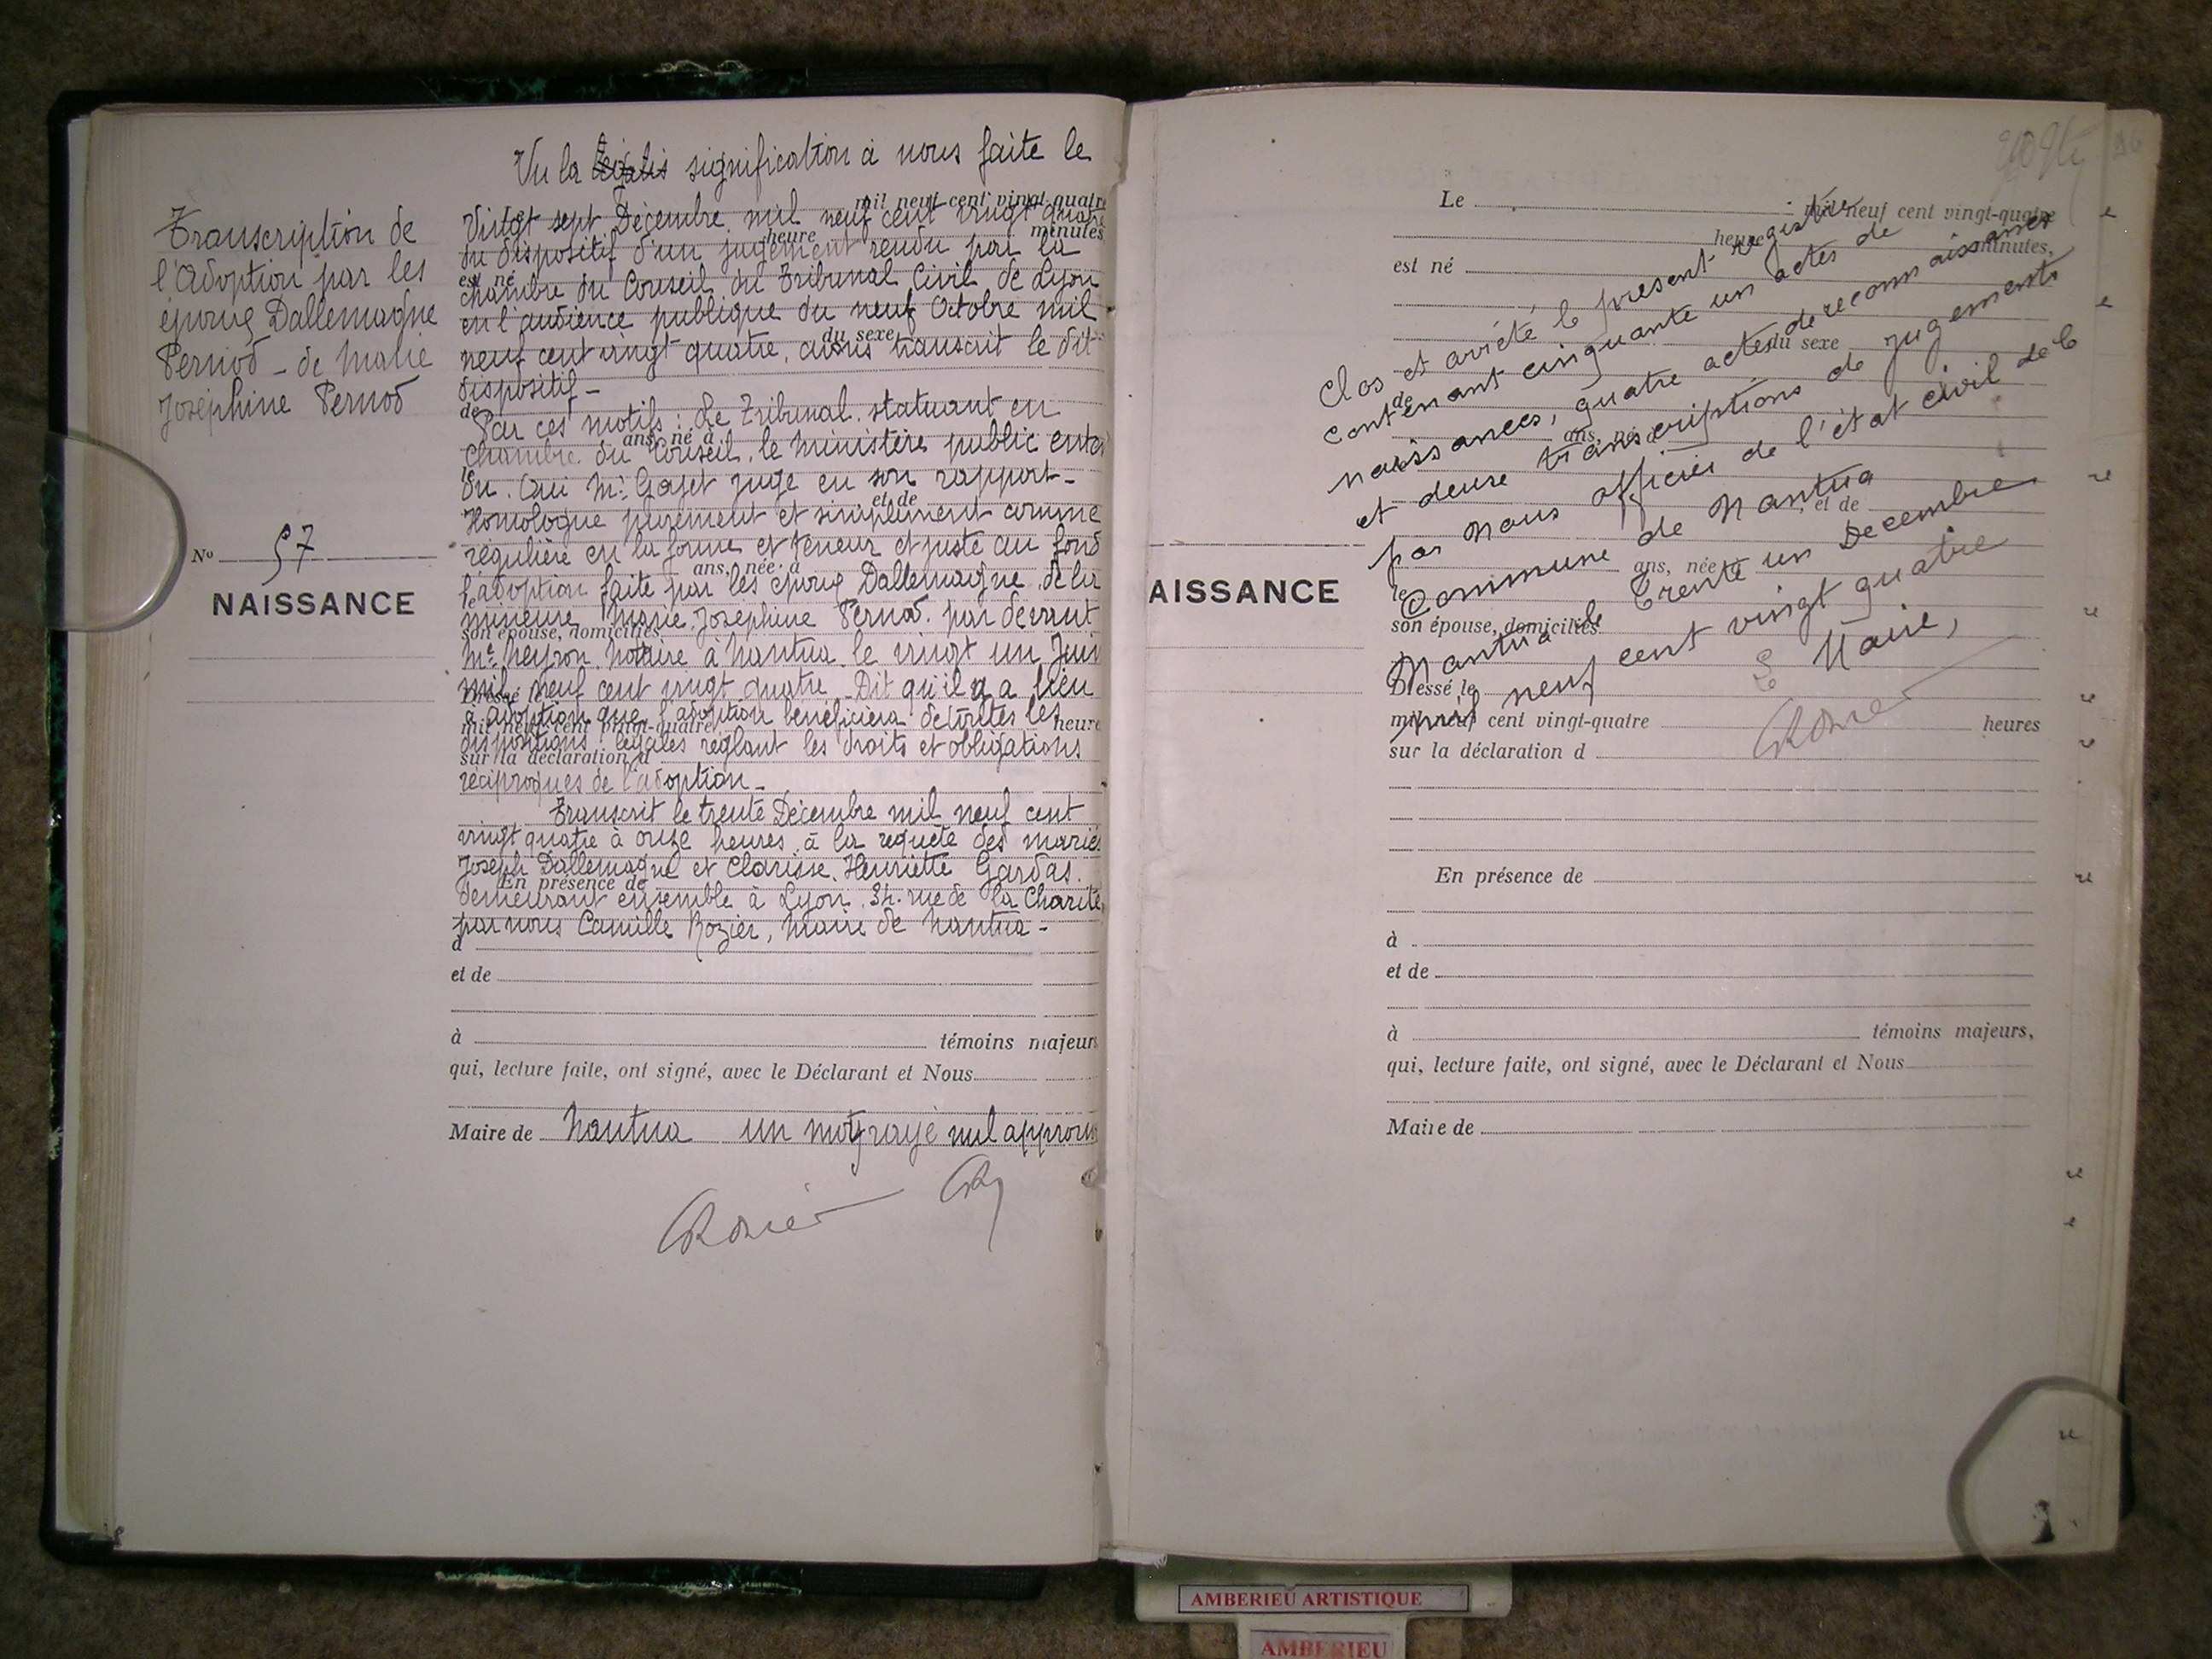 Transcription de
l'Adoption par les
époux Dallemagne
Pernod - de Marie
Joséphine Pernod
No 57
NAISSANCE
Vu la signification à nous faite le
mil neuf cent vingt-quatre
Vingt sept Décembre mil neuf cent vingt quatre
heure minutes
du dispositif d'un jugement rendu par la
est né
chambre du Conseil du Tribunal Civil de Lyon
en l'audience publique du neuf Octobre mil
du sexe
neuf cent vingt quatre, avons transcrit le dit
dispositif -
de
Par ces motifs : Le Tribunal statuant en
ans, né à
Chambre du Conseil, le Ministère public enten
le
du. Oui Mr. Gajet juge en son rapport -
et de
Homologue purement et simplement comme
régulière en la forme et teneur et juste au fond
ans, née à
l'adoption faite par les époux Dallemagne de la
le
mineure Marie Joséphine Pernod par devant
son épouse, domiciliés
Me. Neyron Notaire à Nantua le vingt un Juin
mil neuf cent vingt quatre - Dit qu'il y a lieu
Dressé le
à adoption que l'adoption bénéficiera de toutes les
mil neuf cent vingt-quatre, heure
dispositions légales réglant les droits et obligations
sur la déclaration d
réciproques de l'adoption -
Transcrit le trente Décembre mil neuf cent
vingt quatre à onze heures à la requête des mariés
Joseph Dallemagne et Clarisse Henriette Gardas.
En présence de
demeurant ensemble à Lyon, 34. rue de la Charité,
par nous Camille Rozier, Maire de Nantua -
à
et de
à témoins majeurs
qui, lecture faite, ont signé, avec le Déclarant et Nous
Maire de Nantua un mot rayé nul approuvé
CRozier CR
AISSANCE
Le mil neuf cent vingt-quatre
heure minutes,
est né
du sexe
de
ans, né à
et de
ans, née
le
son épouse, domiciliés
Dressé le
mil neuf cent vingt-quatre heures
sur la déclaration d
Clos et arrêté le présent registre
contenant cinquante un actes de
naissances, quatre actes de reconnaissances
et deux transcriptions de jugements
par Nous officier de l'état civil de la
Commune de Nantua
Nantua le Trente un Décembre
mil neuf cent vingt quatre
Le Maire,
CRozier
En présence de
à
et de
à témoins majeurs,
qui, lecture faite, ont signé, avec le Déclarant et Nous
Maire de
AMBERIEU ARTISTIQUE
AMBERIEU